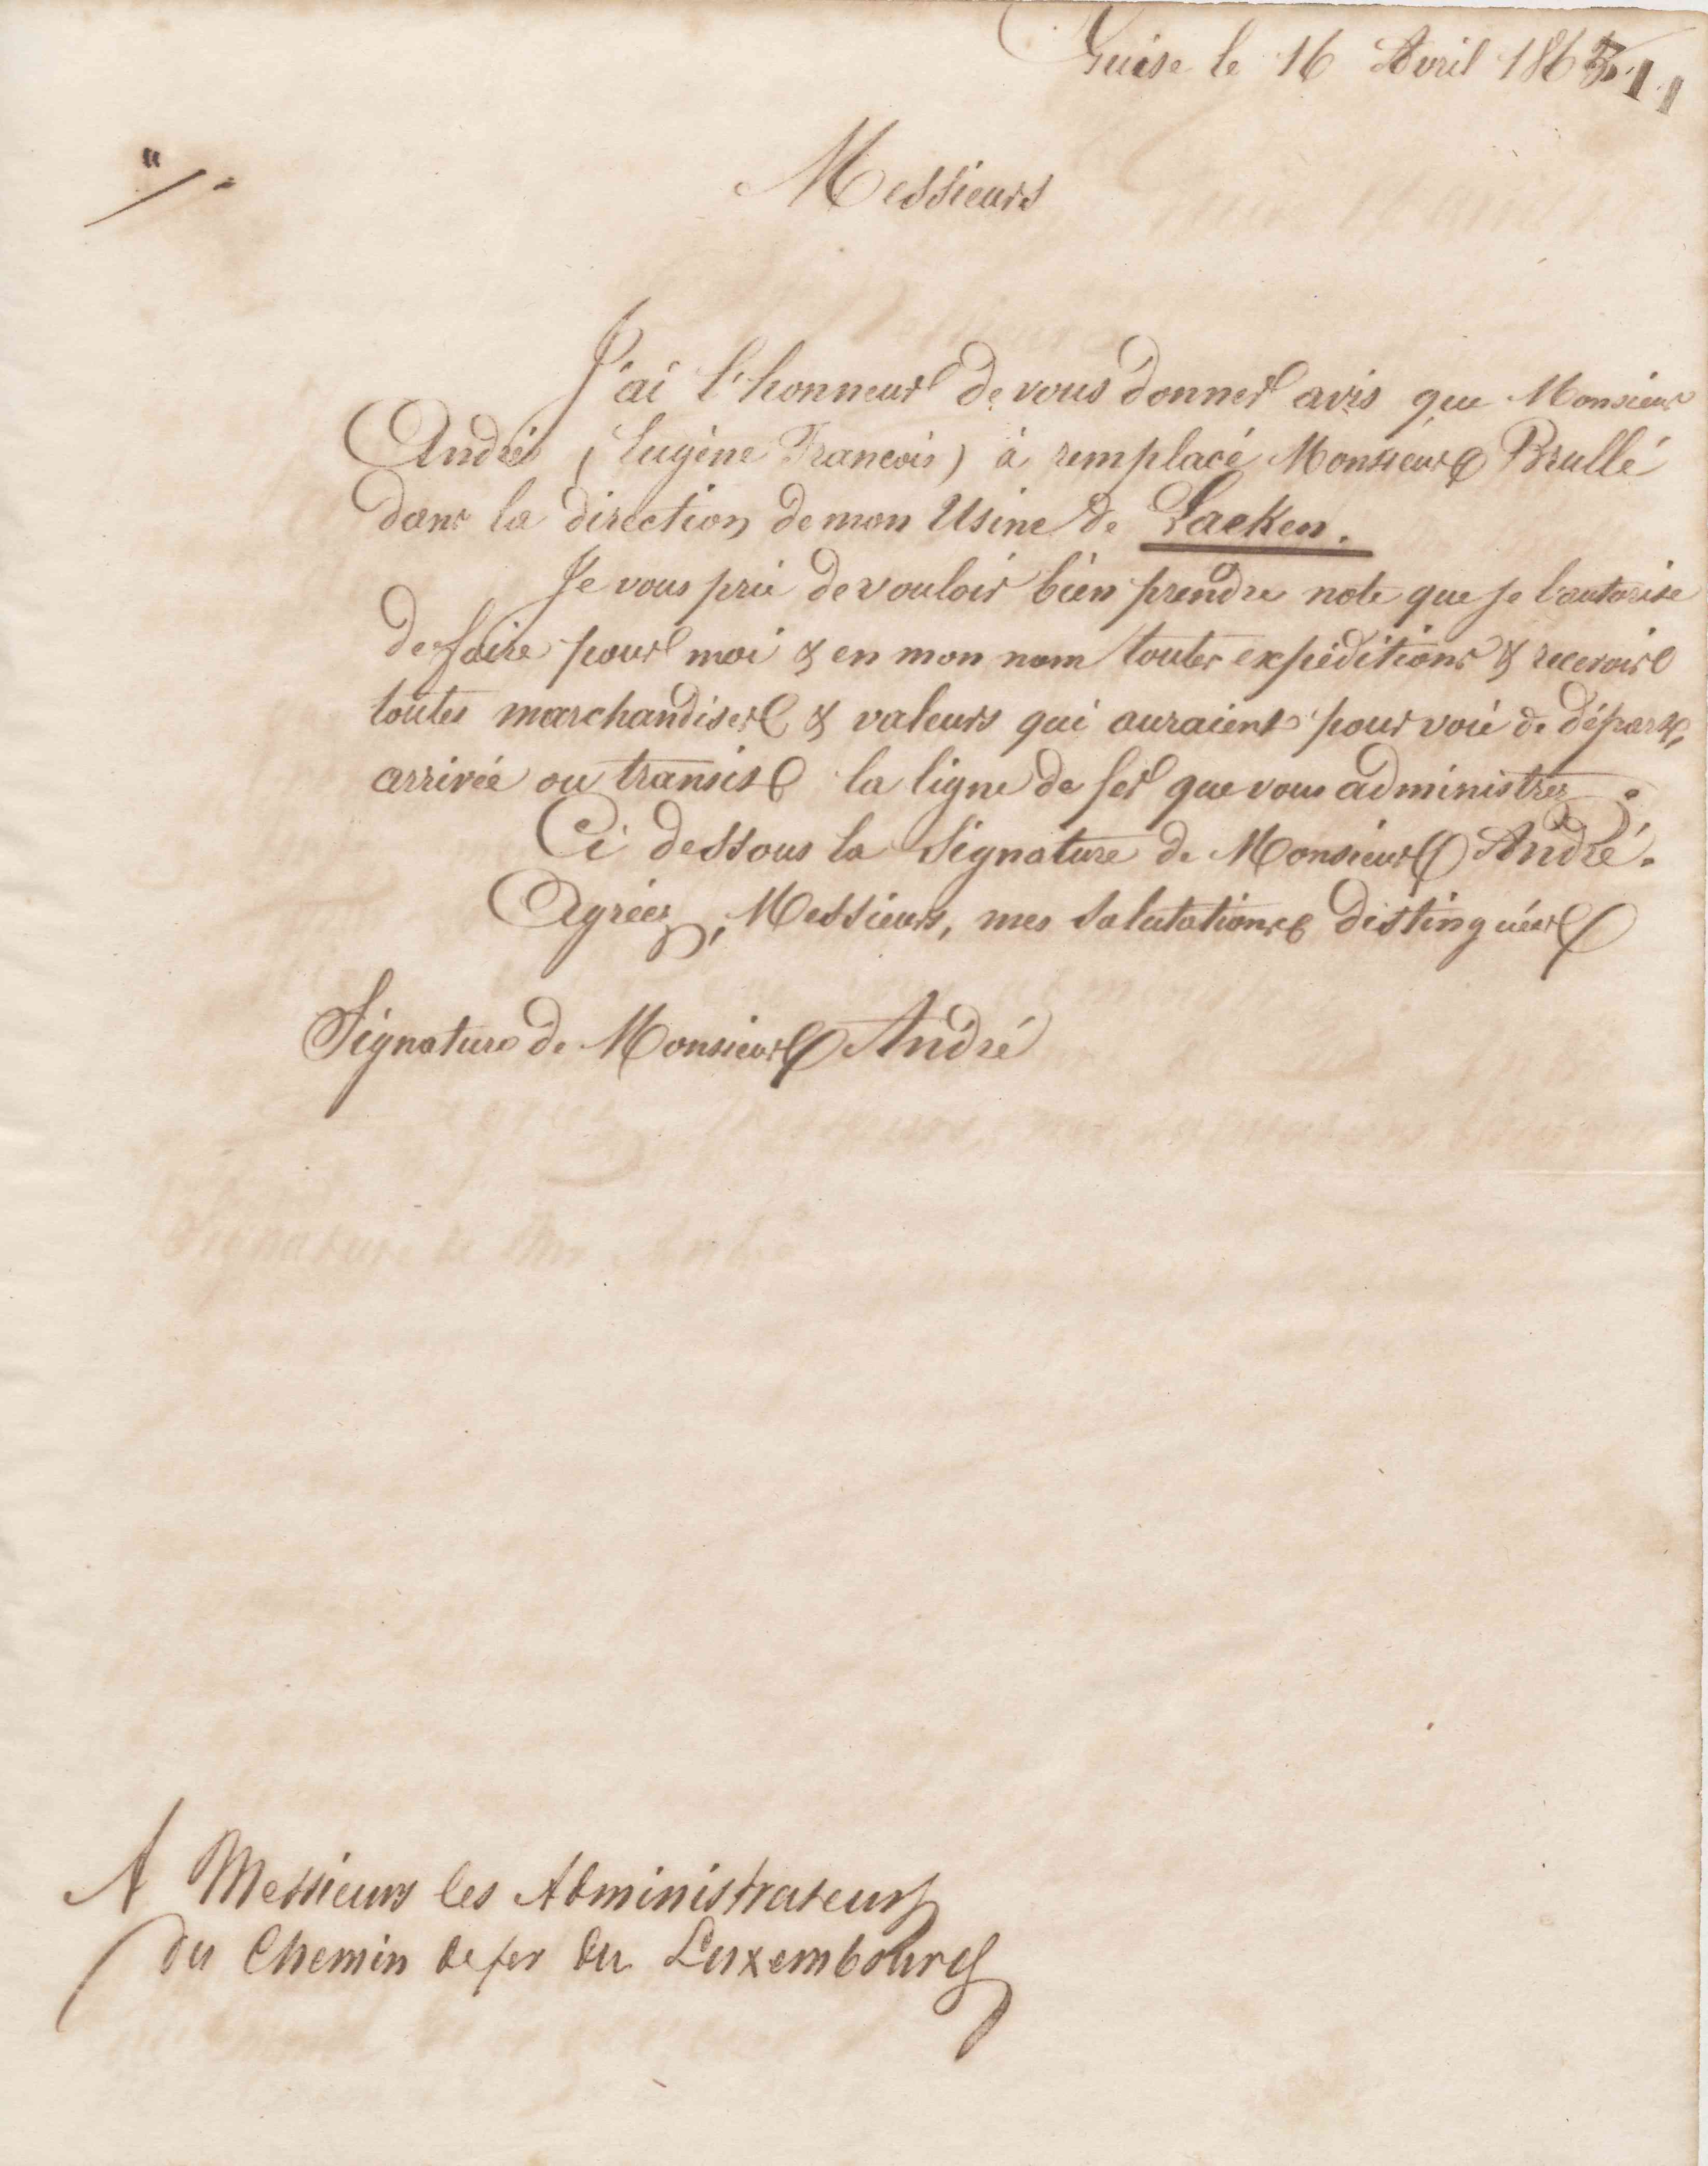 Guise le 16 Avril 1865
Messieurs
J'ai l'honneur de vous donner avis que Monsieur
André (Eugène Francois) à remplacé Monsieur Brullé
dans la direction de mon Usine de Laeken.
Je vous prie de vouloir bien prendre note que je l'autorise
de faire pour moi & en mon nom toutes expéditions & recevoir
toutes marchandises & valeurs qui auraient pour voie de départ,
arrivée ou transit la ligne de fer que vous administrez.
Ci dessous la Signature de Monsieur André.
Agréez, Messieurs, mes Salutations distinguées
Signature de Monsieur André
A Messieurs les Administrateurs
du Chemin de fer du Luxembourg